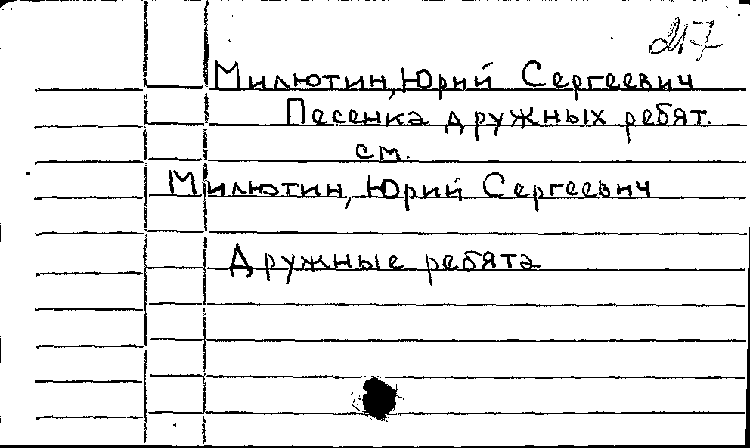 217
Милютин, Юрий Сергеевич
Песенка дружных ребят.
см.
Милютин, Юрий Сергеевич
Дружные ребята